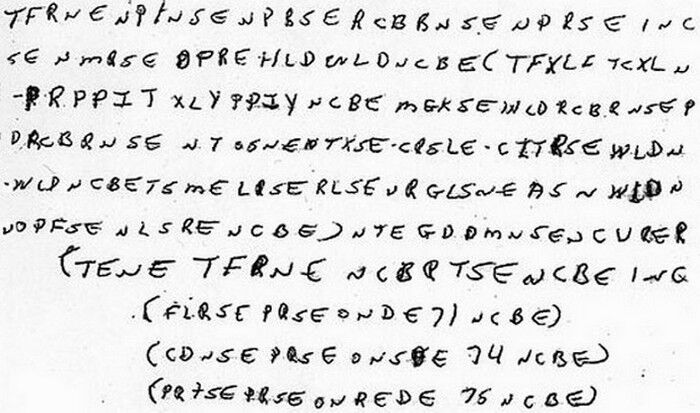 TFRNENPINSENPBSERCBBRNSENPRSEINC
SENMRSEOPREHLDWLDNCBE(TFXLFTCXLN
-PRPPITXLYPPIYNCBEMGKSEWLDRCBRNSEP
DRCBRNSENTOSNENTXSE-CRSLE-CITRSEWLDN
-WLDNCBETSMELRSERLSEURGLSNEASNWLDN
NOPFSENLSRENCBE)NTEGDDMNSENCURER
(TENE TFRNE NCBRTSENCBE INC
(FLRSE PRSE ONDE 71 NCBE)
(CDNSE PRSE ONSDE 74 NCBE)
(PRTSE PRSE ONREDE 75 NCBE)